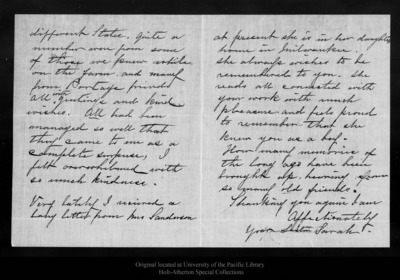 different States, quite a
number were from some
of those we knew while
on the farm and many
from Portage friends
All with greetings and kind
wishes. All had been
managed so well that
they came to me as a
complete surprise, I
felt overwhelmed with
so much kindness.
Very lately I received a
long letter from Mrs Sanderson
at present she is in her daughters
home in Milwaukee,
she always wishes to be
remembered to you. She
reads all connected with
your work with much
pleasure and feels proud
to remember that she
knew you as a boy.
How many memories of
the long ago have been
brought up, hearing from
so many old friends.
Thanking you again I am
Affectionately
Your Sister Sarah
Original located at University of the Pacific Library
Holt-Atherton Special Collections